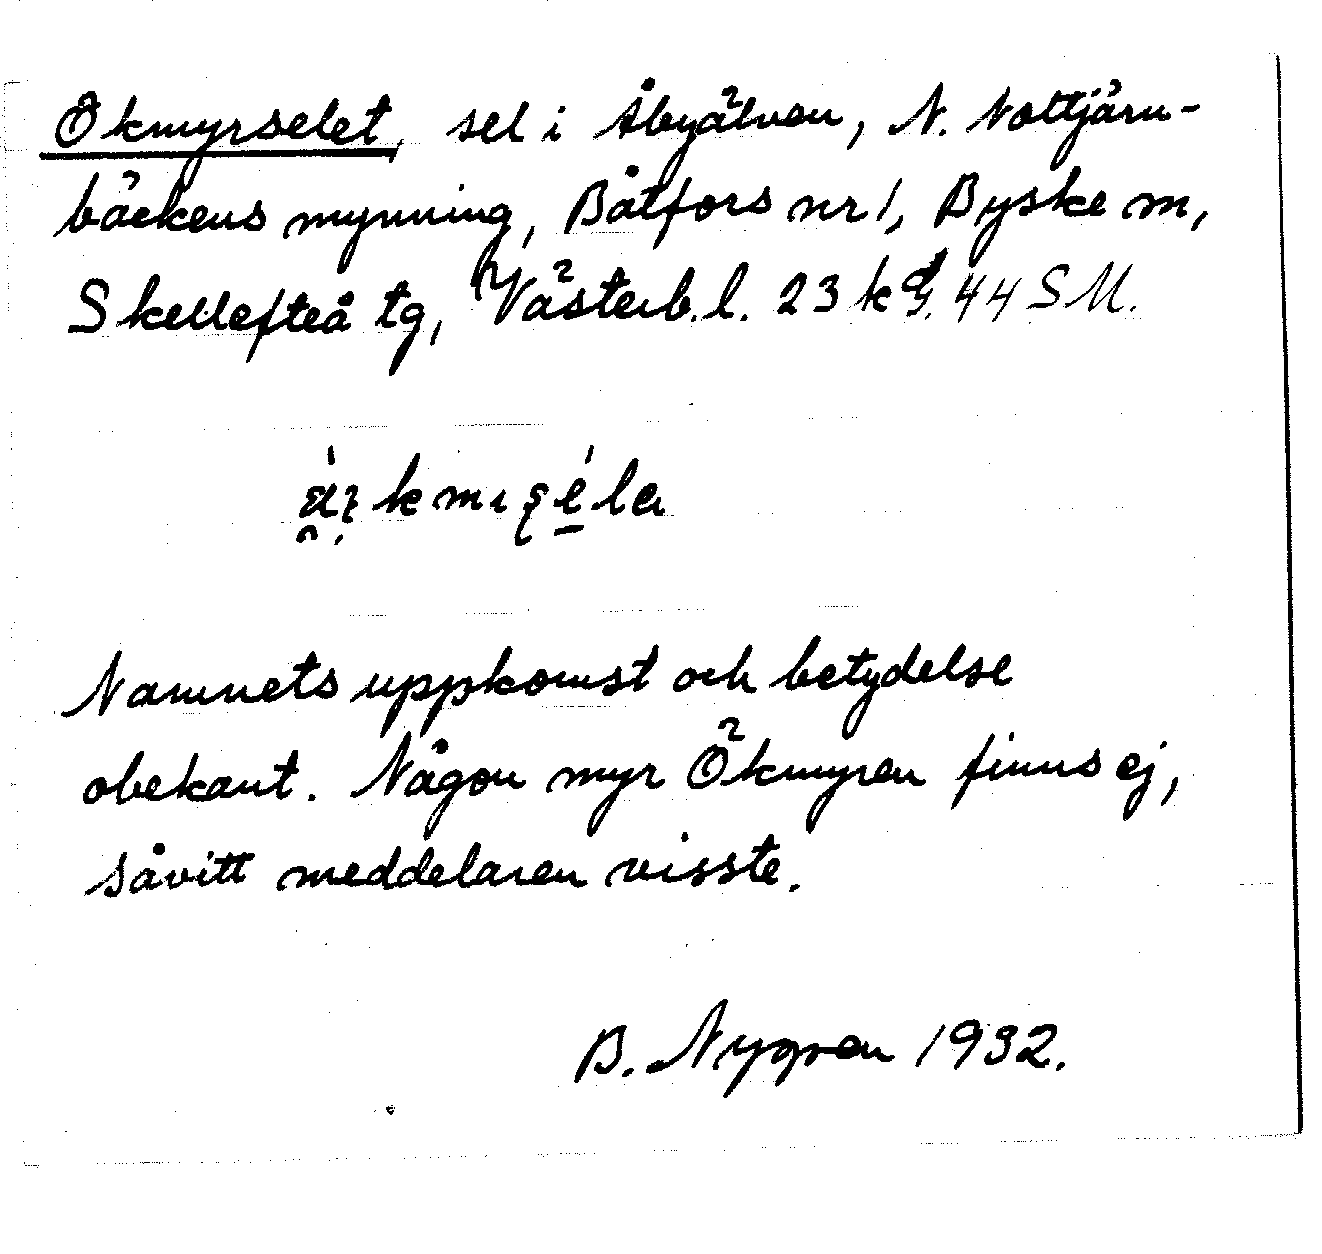 Ökmyrselet, sel i Åbyälven, N. Nottjärn-
bäckens mynning, Båtfors nr 1, Byske sn,
Skellefteå tg, Västerb. l. 23 k 44 SM.
Namnets uppkomst och betydelse
obekant. Någon myr Ökmyren finns ej,
såvitt meddelaren visste.
B. Nygren 1932.